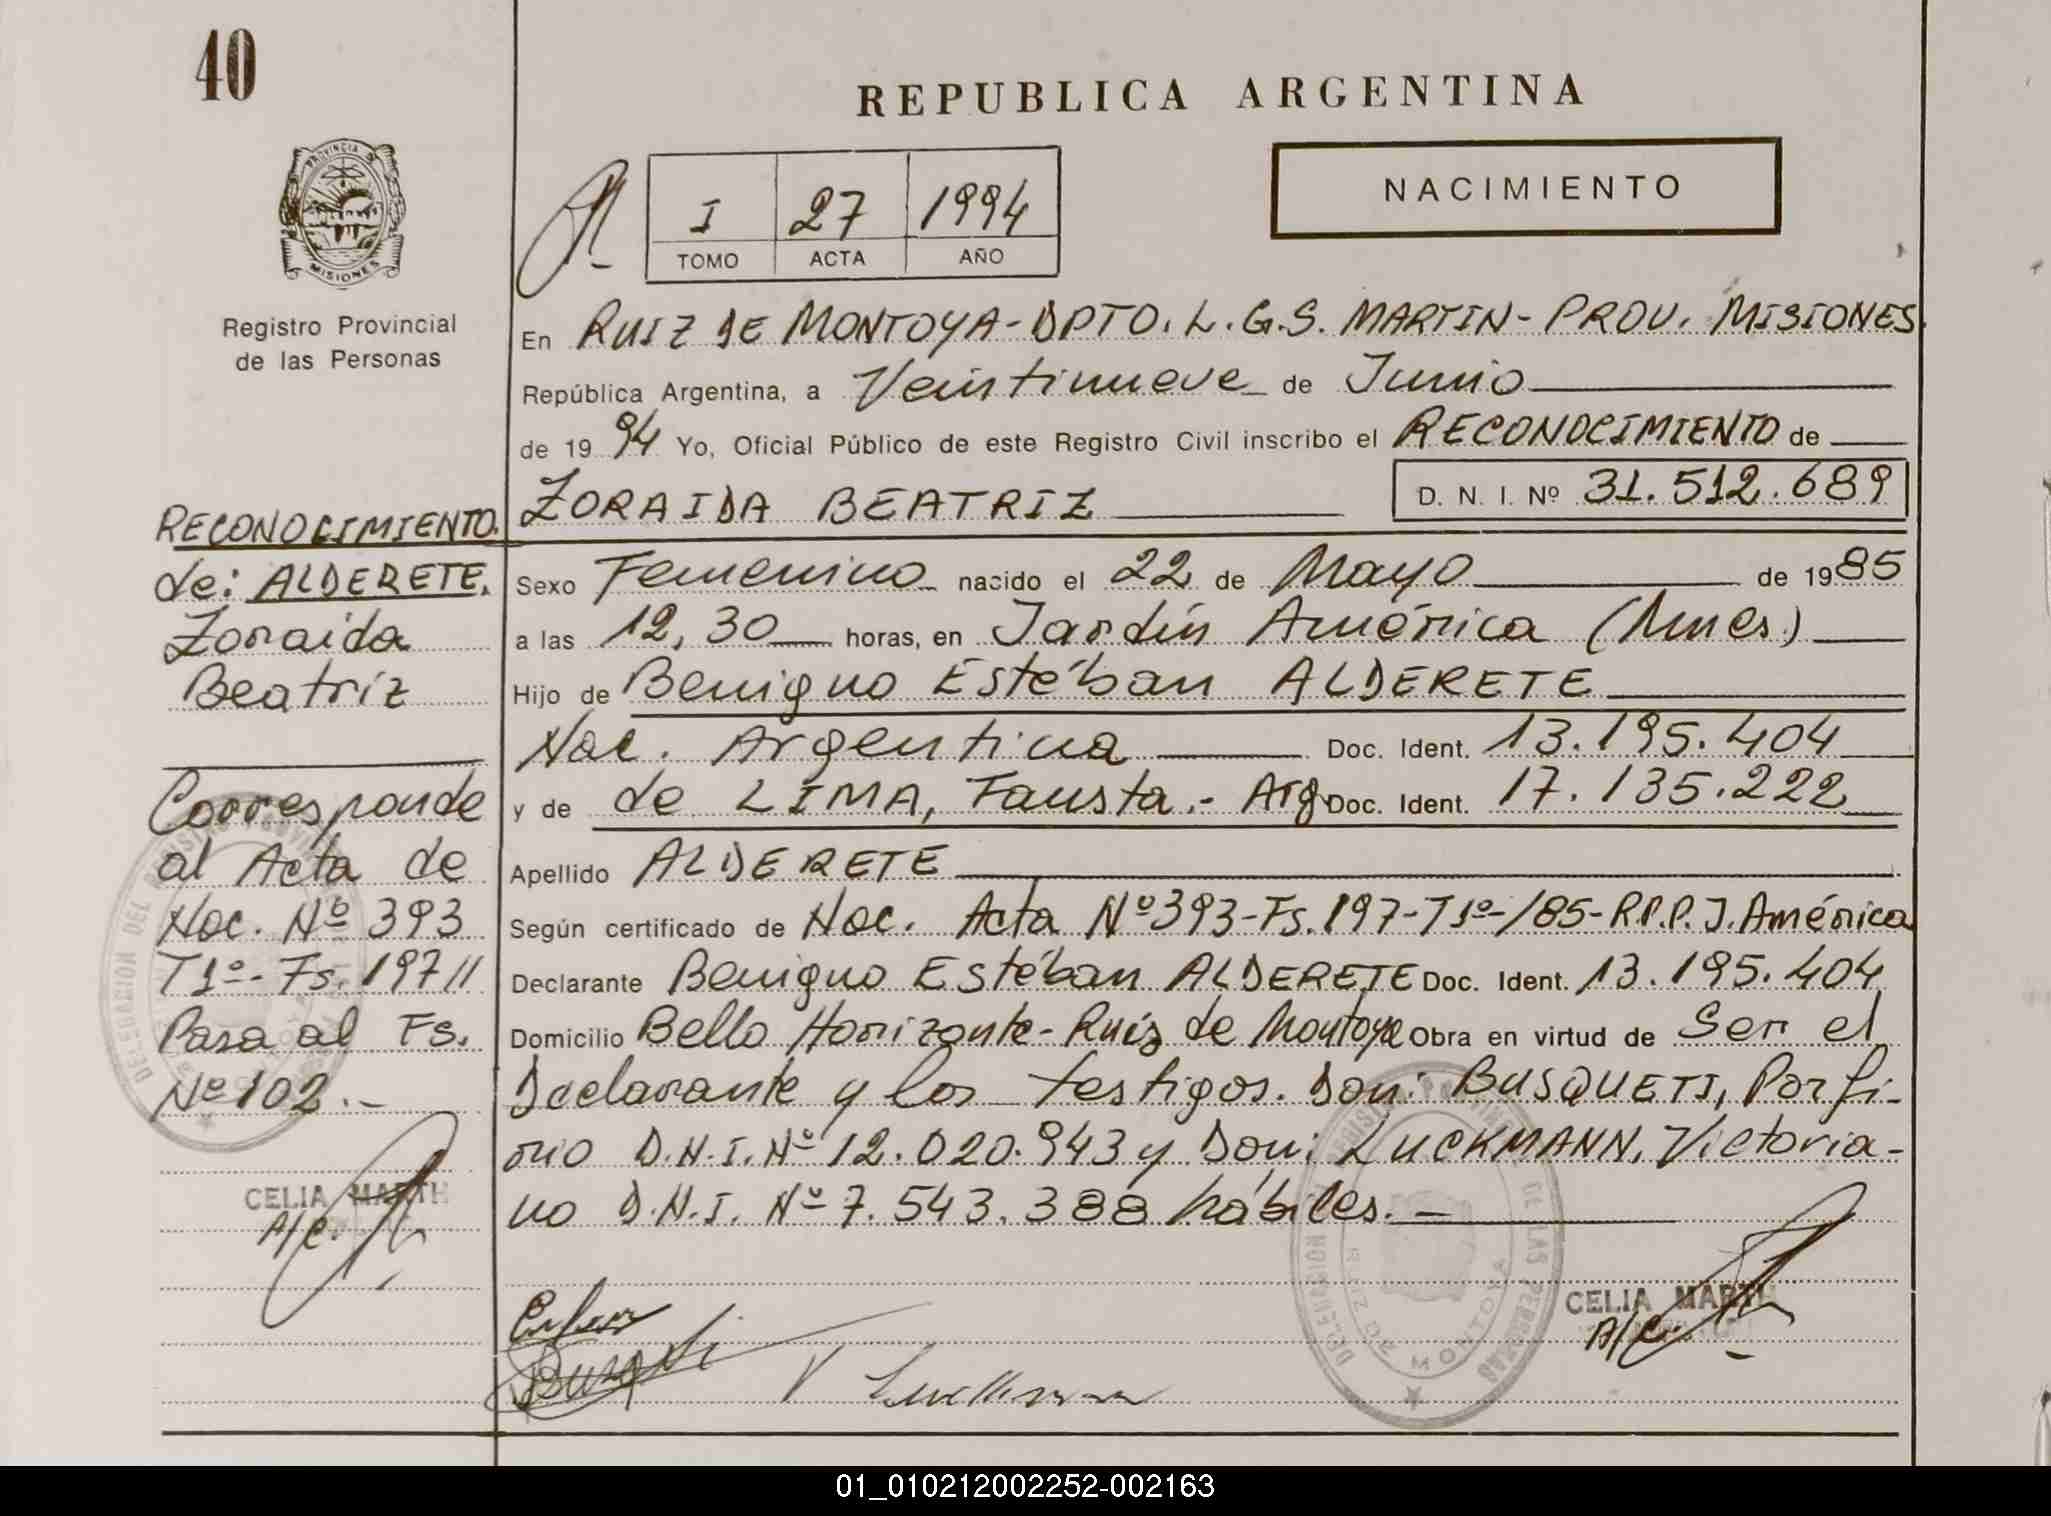 40
REPUBLICA ARGENTINA
NACIMIENTO
PROVINCIA DE
MISIONES
Registro Provincial
de las Personas
I 27 1994
TOMO ACTA AÑO
En RUIZ DE MONTOYA-DPTO. L.G.S. MARTIN-PROV. MISIONES
República Argentina, a Veintinueve de Junio
de 1994 Yo, Oficial Público de este Registro Civil inscribo el RECONOCIMIENTO de
ZORAIDA BEATRIZ D. N. I. Nº 31.512.689
Sexo Femenino nacido el 22 de Mayo de 1985
a las 12,30 horas, en Jardín América (Mnes.)
Hijo de Benigno Estéban ALDERETE
Nac. Argentina Doc. Ident. 13.195.404
y de de LIMA, Fausta.- Arg. Doc. Ident. 17.135.222
Apellido ALDERETE
Según certificado de Nac. Acta Nº 393-Fs.197-T1º-/85-R.P.P. J. América
Declarante Benigno Estéban ALDERETE Doc. Ident. 13.195.404
Domicilio Bello Horizonte-Ruiz de Montoya Obra en virtud de Ser el
Declarante y los testigos. Don: BUSQUETS, Porfi-
rio D.N.I. Nº 12.020.943 y Don: LUCKMANN, Victoria-
no D.N.I. Nº 7.543.388 hábiles.-
RECONOCIMIENTO.
de: ALDERETE,
Zoraida
Beatriz
Corresponde
al Acta de
Nac. Nº 393
T1º-Fs.197//
Pasa al Fs.
Nº 102.-
CELIA MARTH
A/C.
CELIA MARTH
A/C.
DE MONTOYA
01_010212002252-002163